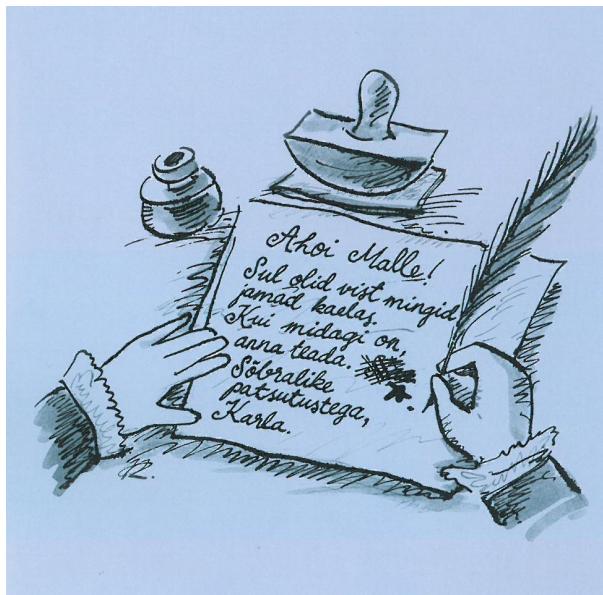 Ahoi Malle!
Sul olid vist mingid
jamad kaelas.
Kui midagi on,
anna teada.
Sõbralike
patsutustega,
Karla.